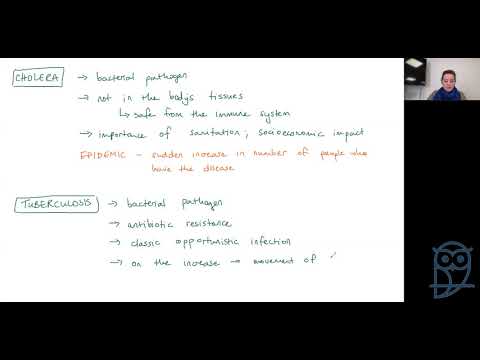 CHOLERA → bacterial pathogen
→ not in the body's tissues
↳ safe from the immune system
→ importance of sanitation; socioeconomic impact
EPIDEMIC - sudden increase in number of people who
have the disease
TUBERCULOSIS → bacterial pathogen
→ antibiotic resistance
→ classic opportunistic infection
→ on the increase → movement of